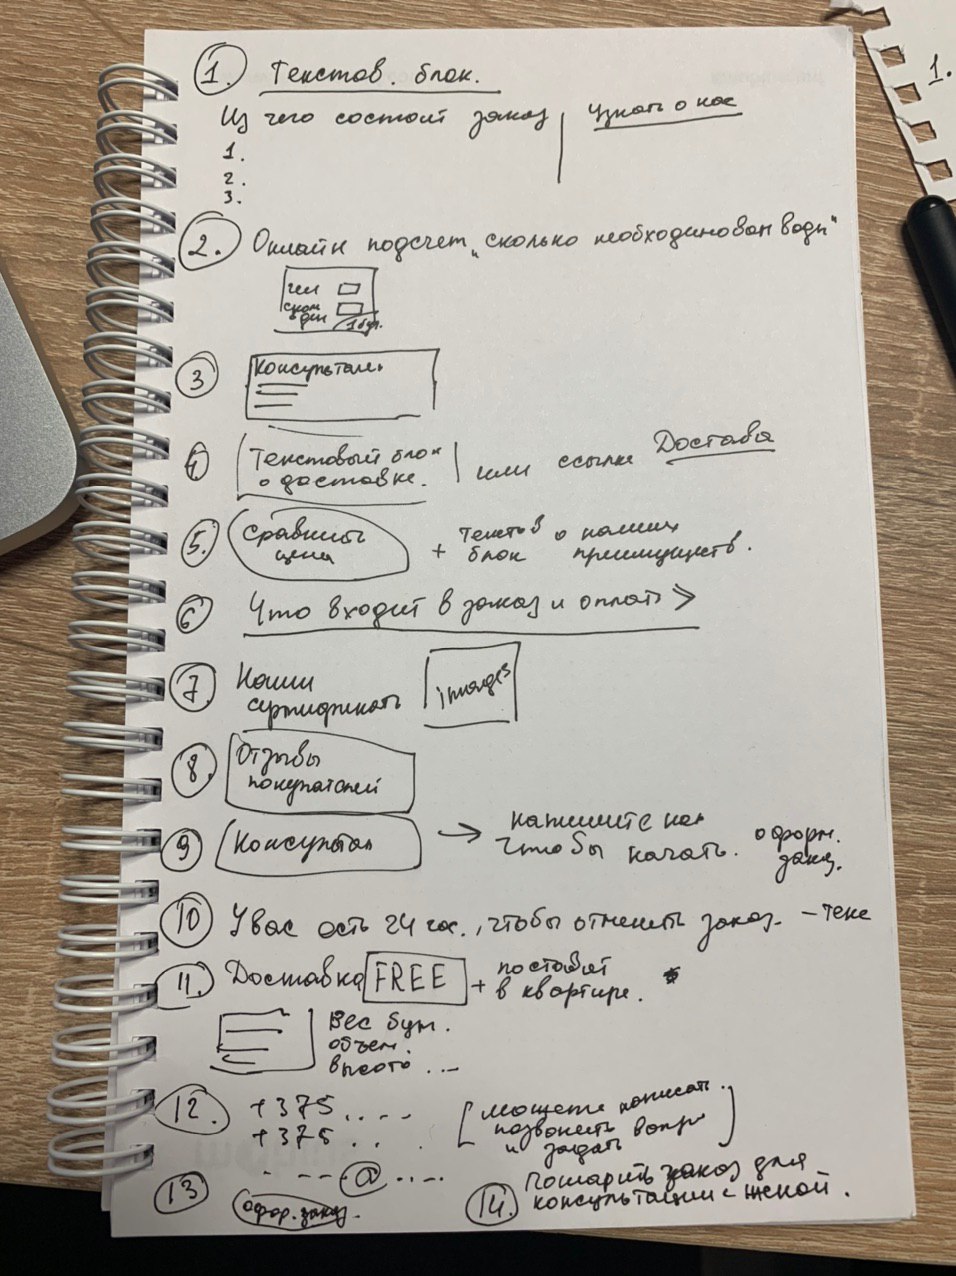 1. Текстов. блок.
Из чего состоит заказ | Узнать о нас
1.
2.
3.
2. Онлайн подсчет „сколько необходимо вам воды"
чел
скол
дни
1 бут.
3 Консультац.
4 Текстовый блок
о доставке. или ссылка Доставка
5. Сравнить
цены + текстов
блок о наших
преимуществ.
6 Что входит в заказ и оплат >
7 Наши
сертификаты images
8. Отзывы
покупателей
9 Консультац → напишите нам
чтобы начать. оформ.
заказ.
10 У вас есть 24 час., чтобы отменить заказ. – текс
11. Доставка FREE + поставят
в квартире.
Вес бут.
объем.
высота ...
12. +375 ....
+375 ..
[можете написать.
позвонить вопр
и задать]
- - - - @ ....
13 офор. заказ.
14. Пошарить заказ для
консультации с женой.
1.